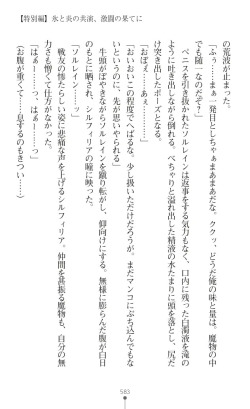 【特別編】氷と炎の共演、激闘の果てに
の荒波が止まった。
「ふぅーっ、一発目としちゃぁまあまあだな。ククッ、どうだ俺の味と量は。魔物の中
でも随一なのだぞ？」
「おぼぇ……あ……」
ペニスを引き抜かれたソルレインは返事をする気力もなく、口内に残った白濁液を滝の
ように吐き出しながら倒れる。べちゃりと溢れ出した精液の水たまりに頭を落とし、尻だ
け突き出したポーズとなる。
「おいおいこの程度でへばるな。少し扱いただけだろうが。まだマンコにぶち込んでもな
いというのに、先が思いやられるぞ」
「…………」
牛頭がぼやきながらソルレインを蹴り転がし、仰向けにする。無様に膨らんだ腹が白日
のもとに晒され、シルフィリアの瞳に映った。
「ソルレイン……！」
戦友の惨たらしい姿に悲痛な声を上げるシルフィリア。仲間を甚振る魔物も、自分の無
力さも憎くて仕方がなかった。
「はぁー……っ、はぁー……っ」
（お腹が重くて……息するのもきつい……）
583